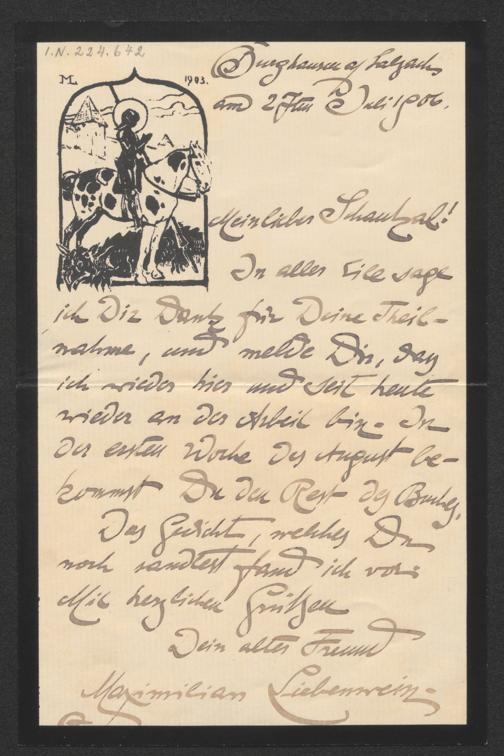 I.N. 224.642
ML 1903.
Burghausen a/ Salzach
am 27ten Juli 1906.
Mein lieber Schaukal!
In aller Eile sage
ich Dir Dank für Deine Theil-
nahme, und melde Dir, dass
ich wieder hier und seit heute
wieder an der Arbeit bin. In
der ersten Woche des August be-
kommst Du den Rest des Buches.
Das Gedicht, welches Du
noch sandtest fand ich vor.
Mit herzlichen Grüßen
Dein alter Freund
Maximilian Liebenwein